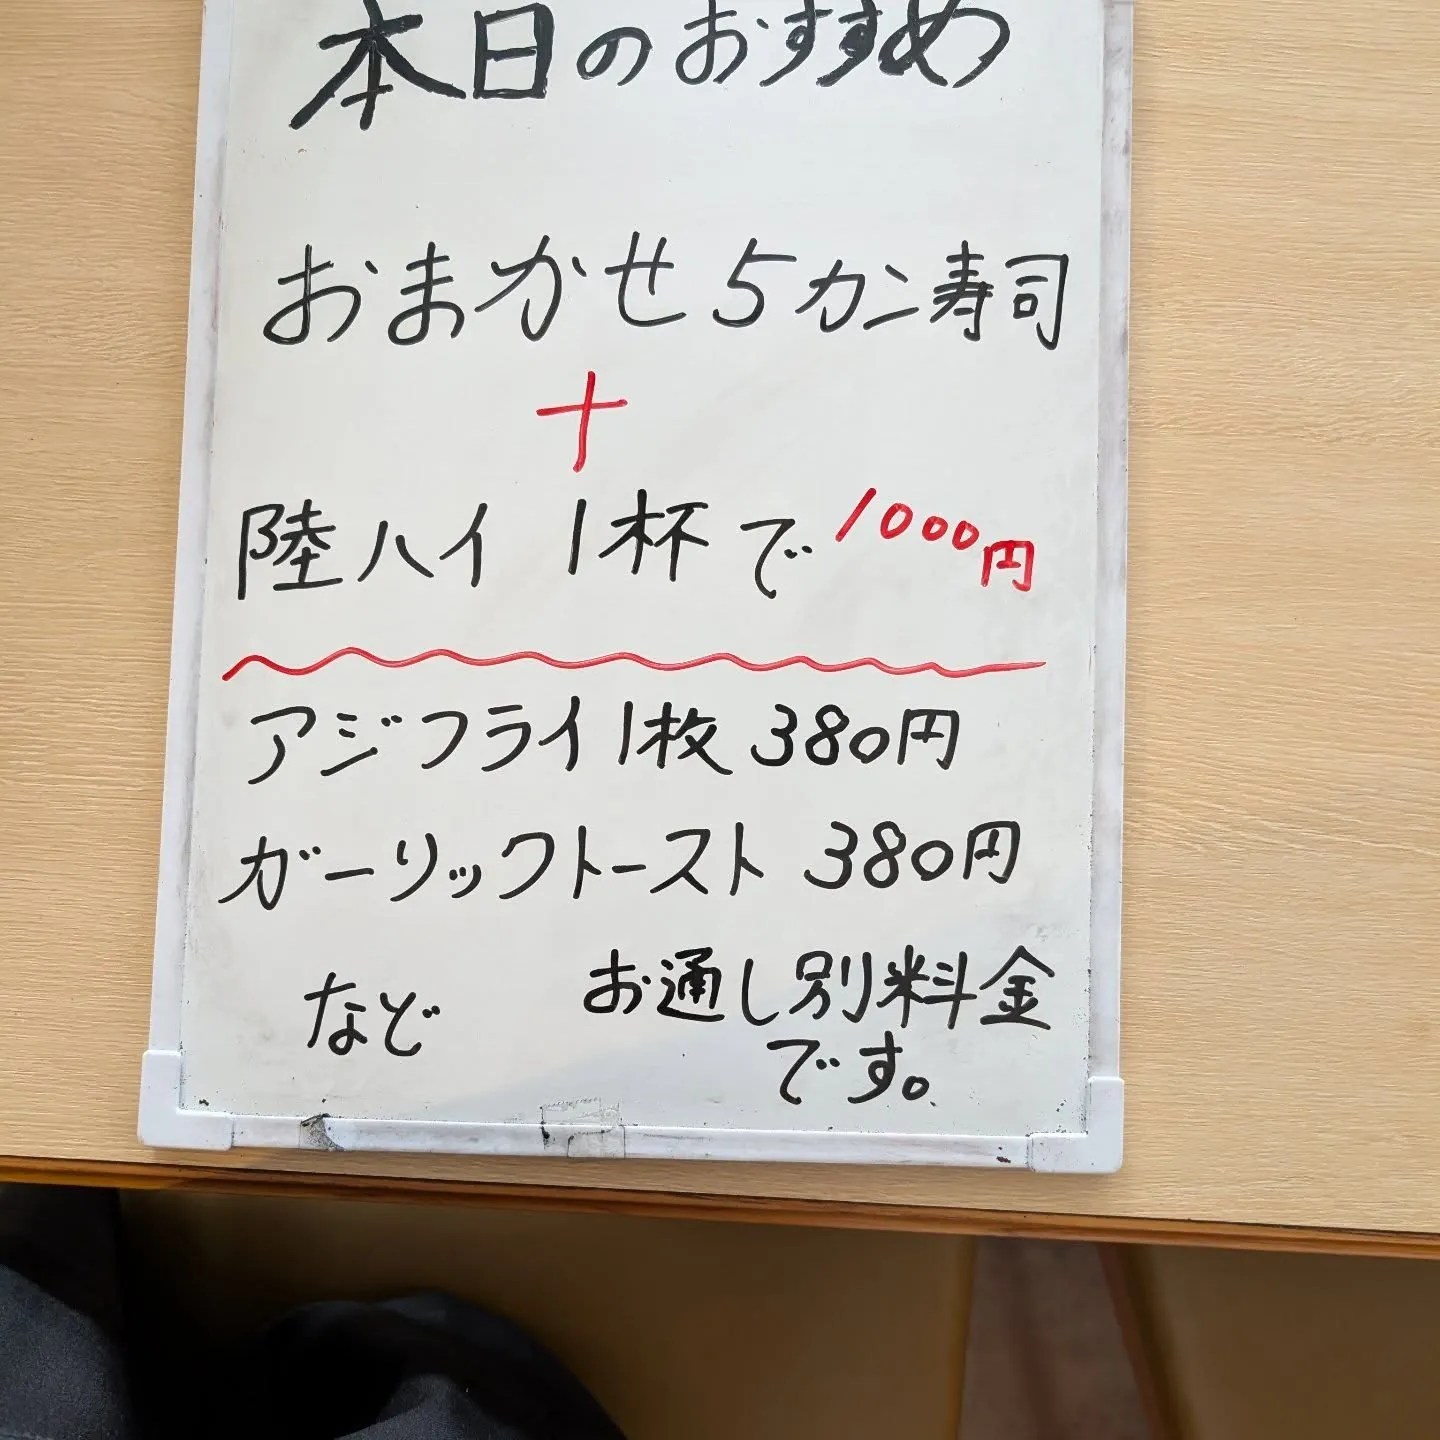 本日のおすすめ
おまかせ5カン寿司
+
陸ハイ 1杯で 1000円
アジフライ1枚 380円
ガーリックトースト 380円
など お通し別料金
です。